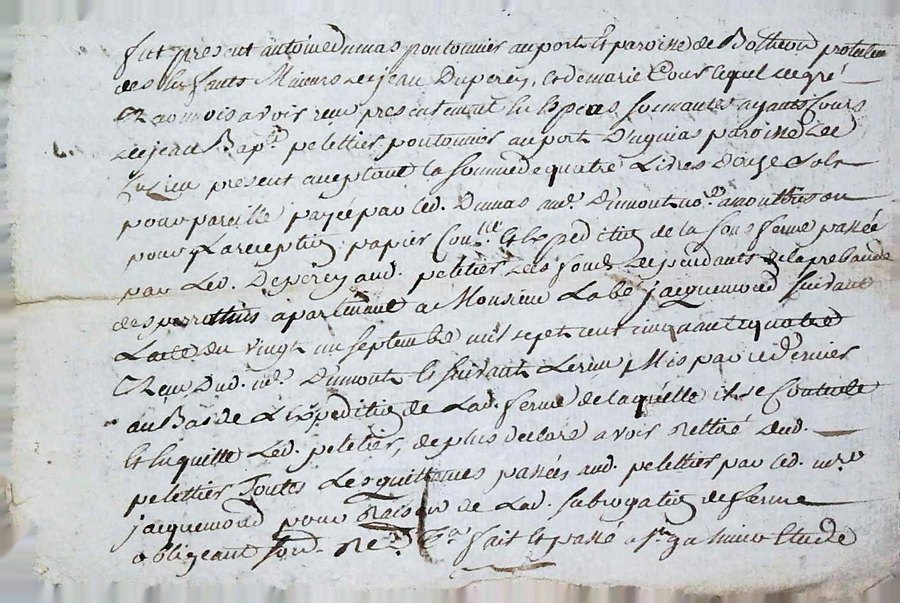 fut present antoine dumas pontonnier au port et paroisse de Botheon
des enfants Mineurs de jean Duperey, et de marie Cour lequel de gré
a avoir reçu presentement en especes sonnantes ayants cours
de jean Bap.te peletier pontonnier au port paroisse de
present acceptant la somme de quatre Livres Douze Sols
pour pareille payée par led. Dumas au d. Dumont no.re a montbrison
pour La reception papier Con.lle et expedition de la sous ferme passée
par Led. Deperey aud. peletier des fonds dependants de la prebande
des perrettes apartenant a Monsieur Labé jacquemond Suivant
Lacte du vingt un septembre mil sept cent cinquante quatre
Reçu Dud. m.e Dumont et suivant Mis par ce dernier
au Bas de Lexpedition de Lad. ferme de laquelle il se Contente
Et en quitte Led. peletier, de plus declare avoir Rettiré dud.
peletier Toutes Les quittances passées aud. peletier par led. m.e
jacquemond pour Raison de Lad. subrogation de ferme
obligeant fait et passé a Etude